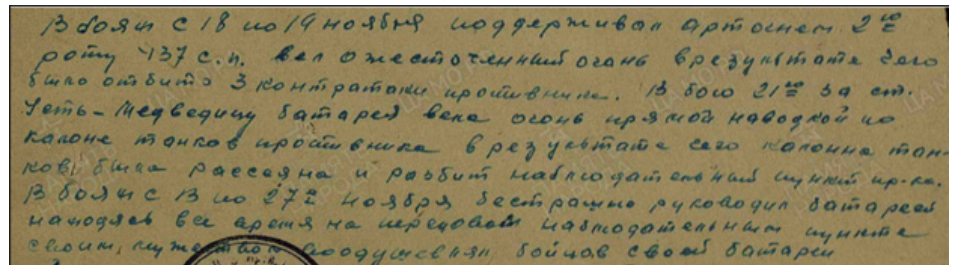 В боях с 18 по 19 ноября поддерживал артогнем 2ую
роту 437 с.п. вел ожесточенный огонь в результате чего
было отбито 3 контратаки противника. В бою 21го за ст.
Усть-Медведицу батарея вела огонь прямой наводкой по
калоне танков противника в результате чего калонна тан-
ков была рассеяна и разбит наблюдательный пункт пр-ка.
В боях с 13 по 27е ноября бесстрашно руководил батареей
находясь все время на передовом наблюдательном пункте
своим мужеством воодушевлял бойцов своей батареи